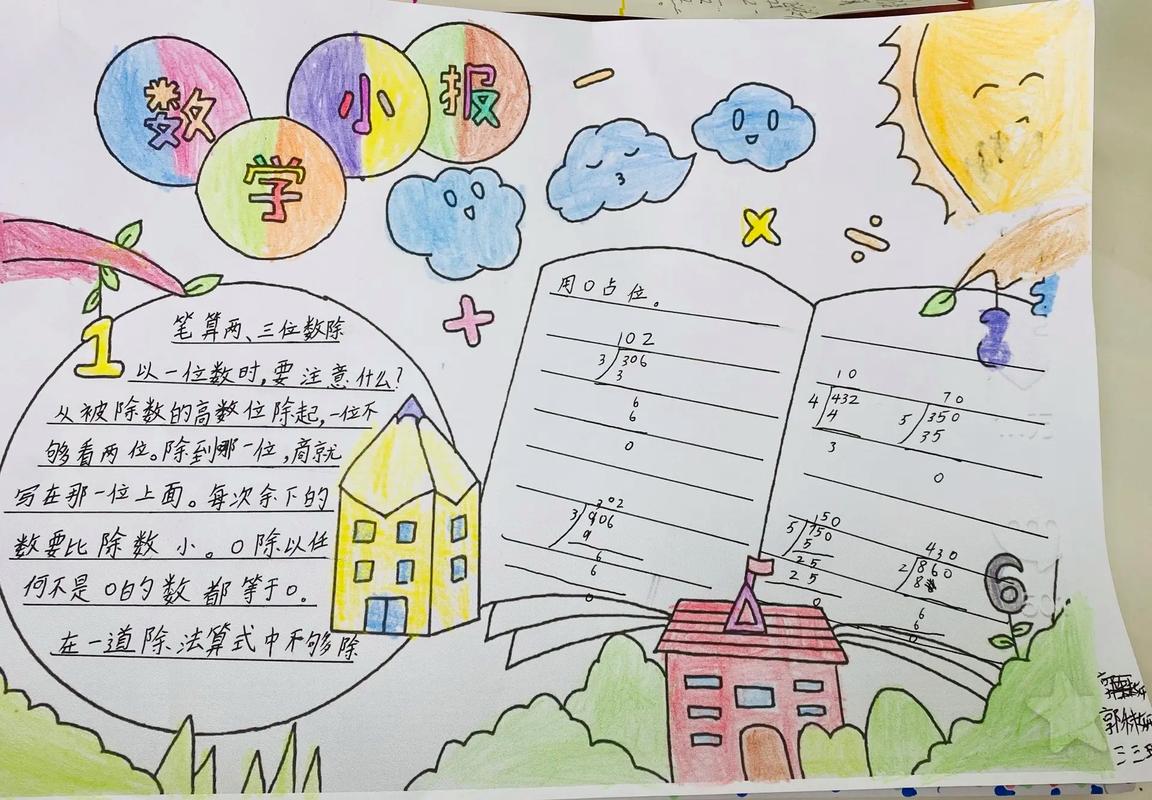 数学小报
1
笔算两、三位数除
以一位数时,要注意什么?
从被除数的高数位除起,一位不
够看两位。除到哪一位,商就
写在那一位上面。每次余下的
数要比除数小。0除以任
何不是0的数都等于0。
在一道除法算式中不够除
+
-
×
÷
用0占位。
102
3 306
3
6
6
0
302
3 906
9
6
6
0
10
4 432
4
3
70
5 350
35
0
150
5 750
5
25
25
0
430
2 860
8
6
6
0
6